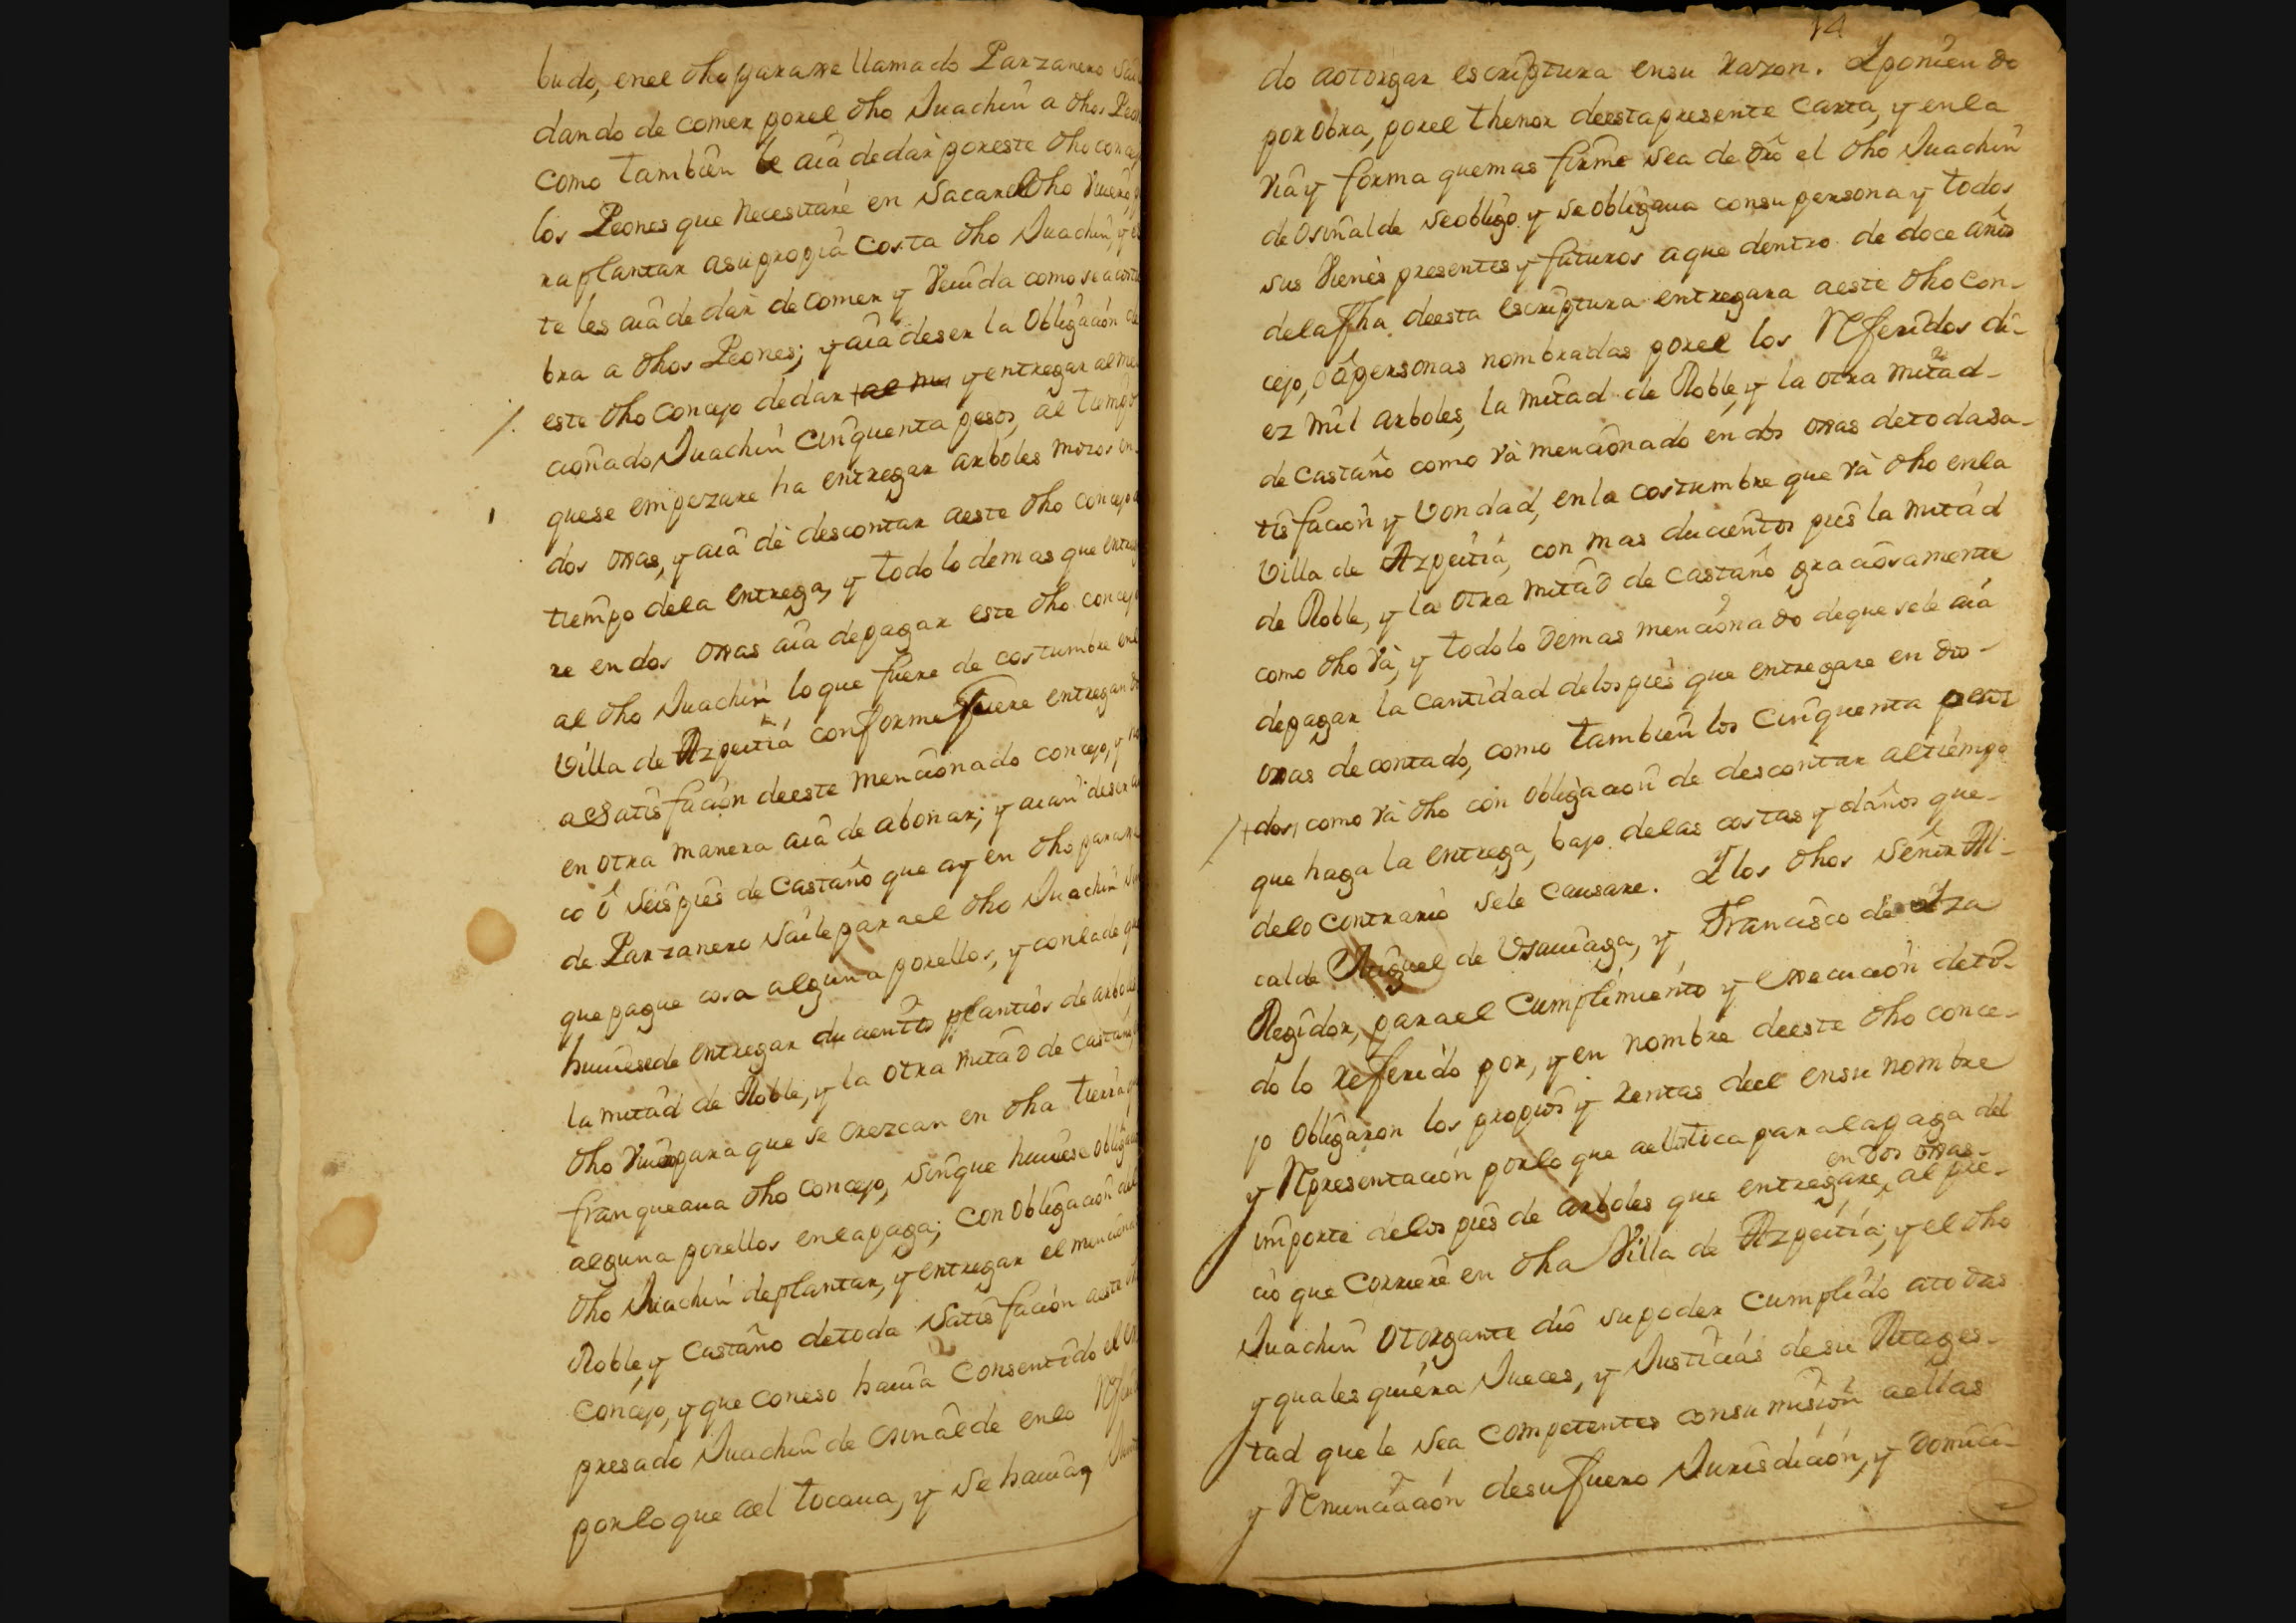 budo, enel dho paraxe llamado Parzanero
dando de comer porel dho Juachin a dhos
como tambien le aia dedar poreste dho
los Peones que Necesitare en Sacarel dho Vivero,
ra plantar asupropia Costa dho Juachin,
te les aia de dar de comer y Vevida como
bra a dhos Peones; y aia deser la Obligacion
este dho Concejo dedar y entregar
cionado Juachin Cinquenta pesos, al tiempo
quese empezare ha entregar arboles
dos oxas, y aia de descontar aeste dho concejo
tiempo dela entrega, y todo lo demas que
re en dos oxas aia depagar este dho concejo
al dho Juachin lo que fuere de costumbre
Villa de Azpeitia conforme fuere entregando
aSatisfacion deeste mencionado concejo, y
en otra manera aia de abonar; y aian
co ô Seis pies de Castaño que ay en dho
de Parzanero para el dho Juachin
que pague cosa alguna porellos, y conlade
huuiesede entregar ducientos plantios de
la mitad de Roble, y la otra mitad de
dho para que se crezcan en dha tierra
franqueaua dho concejo, sinque huuiese
alguna porellos enlapaga; con obligacion
dho Juachin deplantar, y entregar el
Roble, y Castaño detoda Satisfacion
Concejo, y que coneso hauia Consentido
presado Juachin de Osinalde enlo
porlo que ael tocaua, y Se hauia
14
do aotorgar escriptura ensu razon. Y poniendo
por obra, porel thenor deesta presente carta, y enla
via y forma quemas firme sea de dro el dho Juachin
de Osinalde seobligo y seobligaua consu persona y todos
sus Vienes presentes y futuros aque dentro de doce años
dela fha deesta escriptura entregara aeste dho con-
cejo, ô apersonas nombradas porel los Referidos di-
ez mil arboles, la mitad de Roble, y la otra mitad
de castaño como va mencionado en dos oxas detoda sa-
tisfacion y vondad, en la costumbre que va dho enla
Villa de Azpeitia, con mas ducientos pies la mitad
de Roble, y la otra mitad de castaño graciosamente
como dho va, y todo lo demas mencionado deque sele aia
depagar la cantidad delos pies que entregare en dos
oxas de contado, como tambien los cinquenta pesos
como va dho con obligacion de descontar altiempo
que haga la entrega, bajo delas costas y daños que
delo contrario sele causare. Y los dhos Señor Al-
calde Miguel de Vsauiaga, y Francisco de
Regidor, parael Cumplimiento y execucion deto-
do lo referido por, y en nombre deeste dho conce-
jo obligaron los propios y rentas deel ensu nombre
y Representacion porlo que aellos toca paralapaga del
importe delos pies de arboles que entregare, en dos oxas al pre-
cio que corriere en dha Villa de Azpeitia; y el dho
Juachin otorgante dio supoder cumplido atodas
y quales quiera Jueces, y Justicias desu Mages-
tad que le sea competentes consumision aellas
y Renunciacion desu fuero Jurisdicion, y Domici-